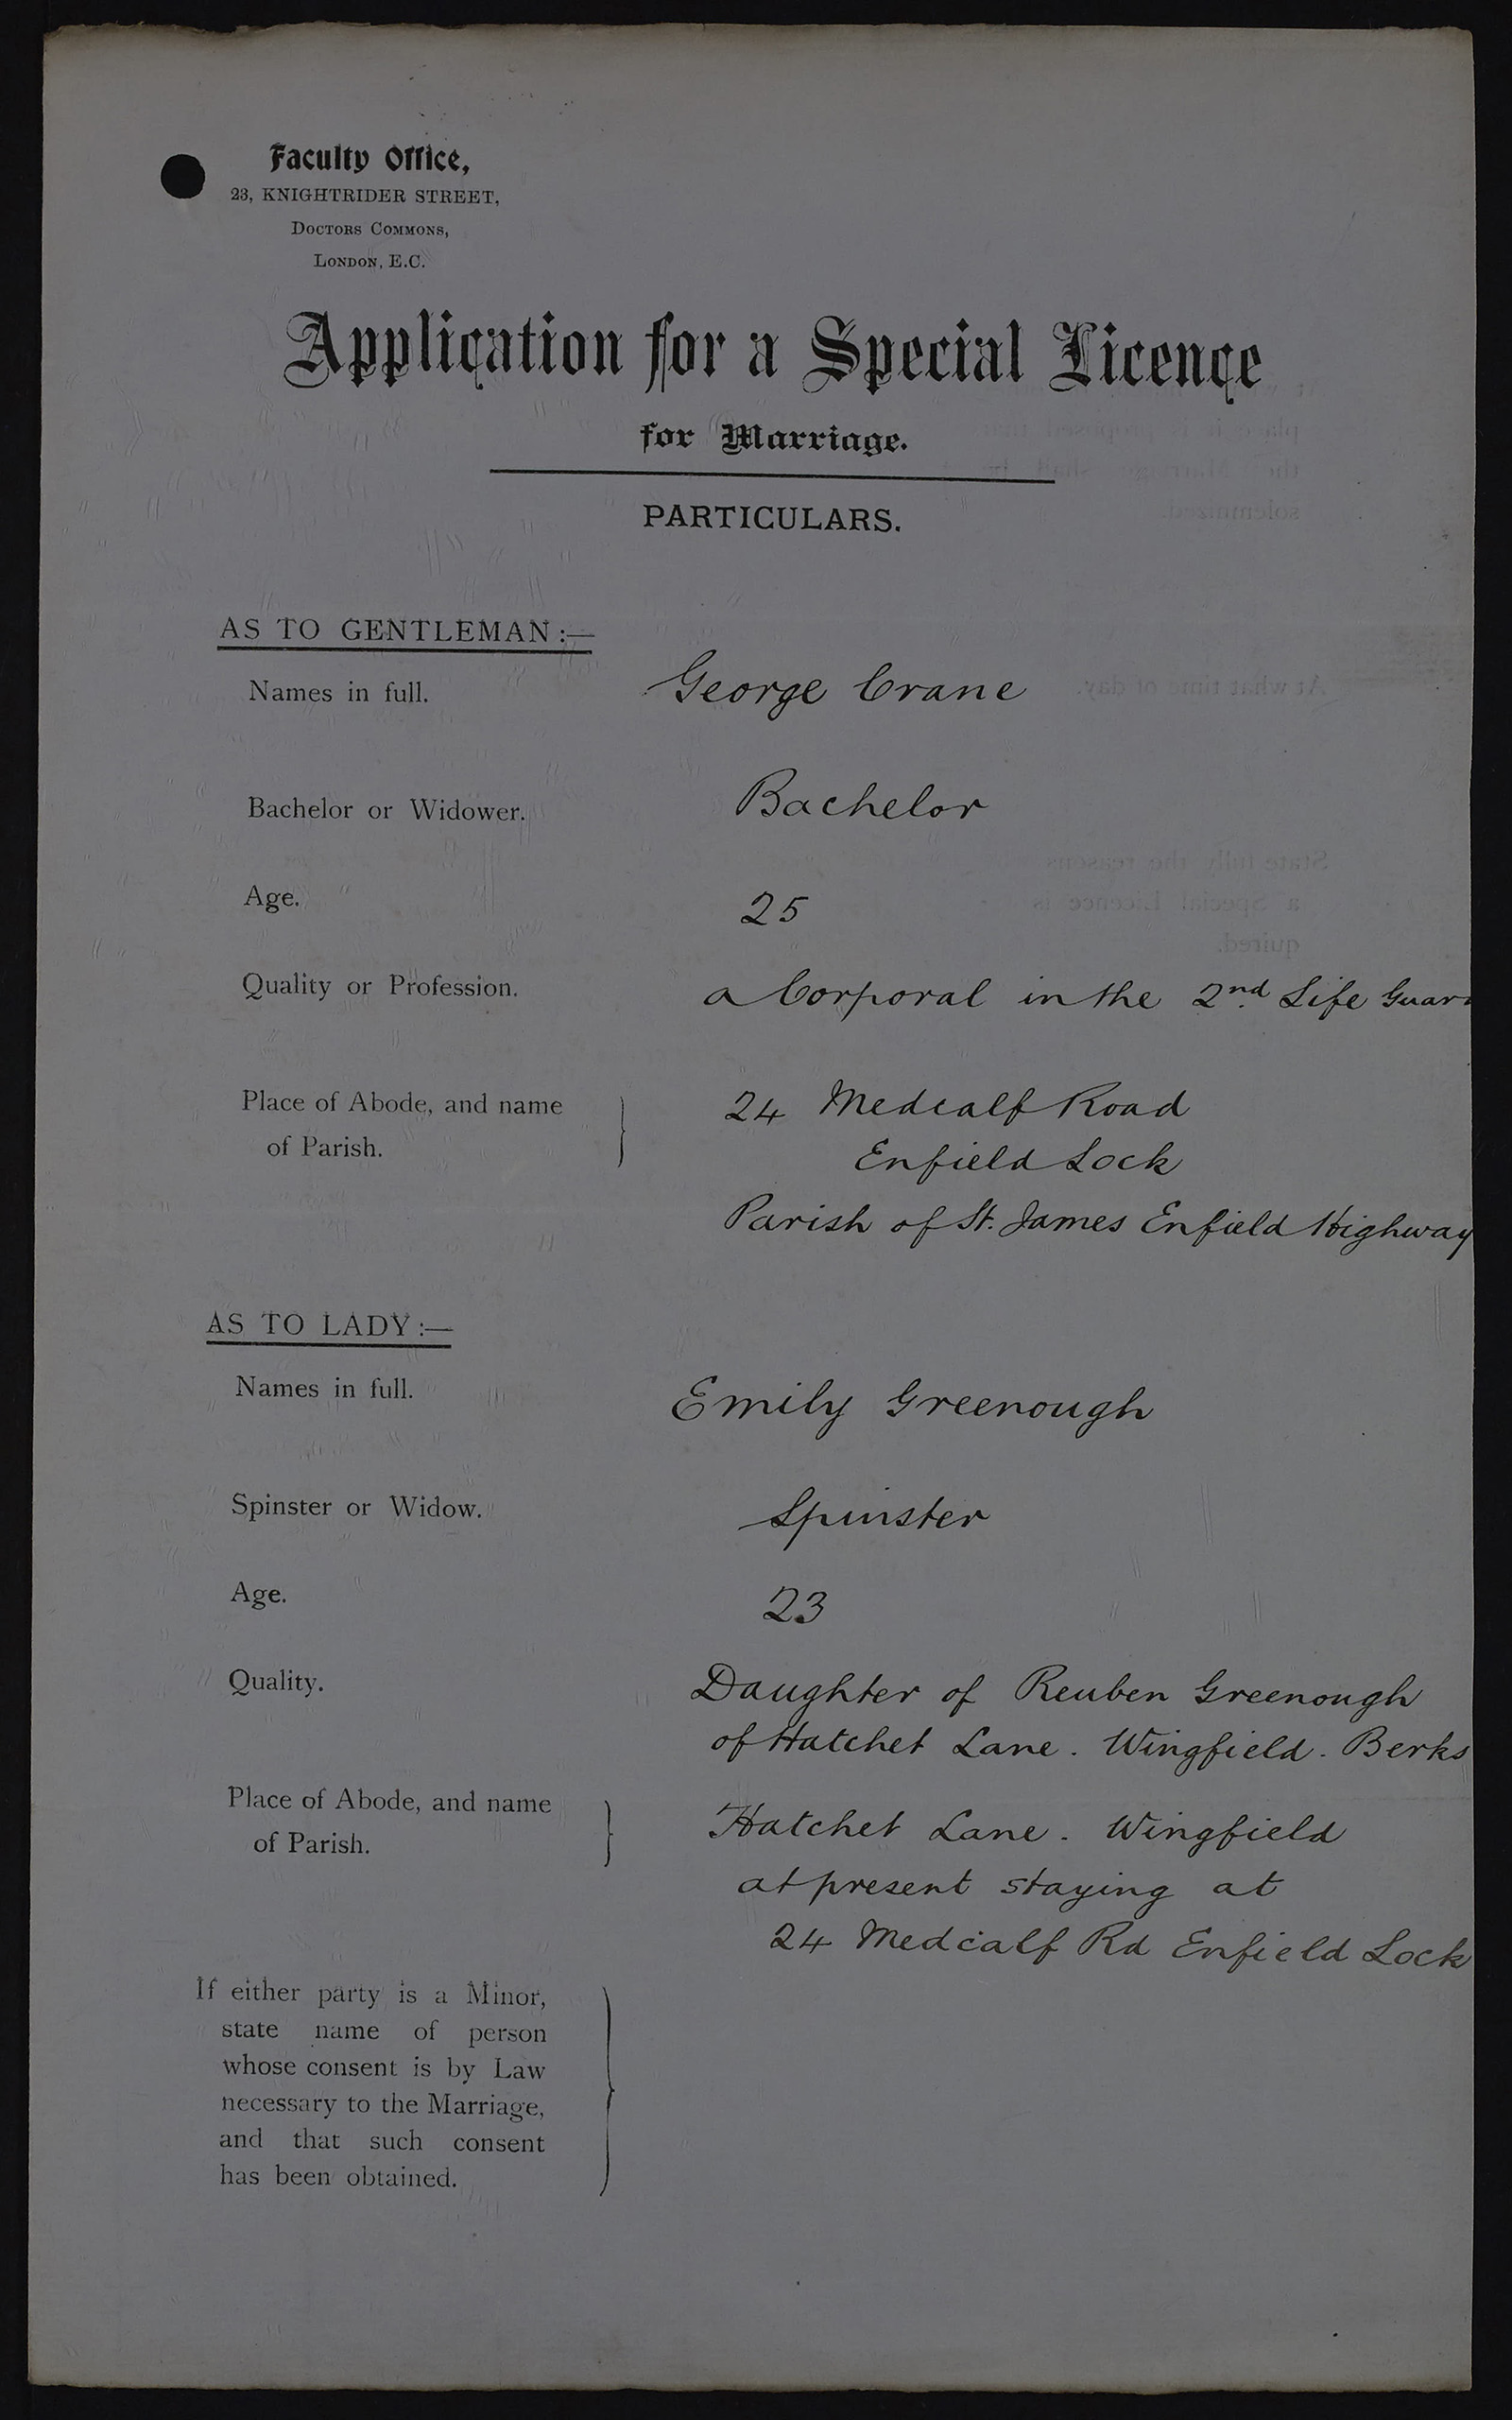 Faculty Office,
23, KNIGHTRIDER STREET,
DOCTORS COMMONS,
LONDON, E.C.
Application for a Special Licence
for Marriage.
PARTICULARS.
AS TO GENTLEMAN :—
Names in full. George Crane
Bachelor or Widower. Bachelor
Age. 25
Quality or Profession. a Corporal in the 2nd Life Guar
Place of Abode, and name 24 Medcalf Road
of Parish. Enfield Lock
Parish of St. James Enfield Highway
AS TO LADY :—
Names in full. Emily Greenough
Spinster or Widow. Spinster
Age. 23
Quality. Daughter of Reuben Greenough
of Hatchet Lane. Wingfield. Berks
Place of Abode, and name Hatchet Lane. Wingfield
of Parish. at present staying at
24 Medcalf Rd Enfield Lock
If either party is a Minor,
state name of person
whose consent is by Law
necessary to the Marriage,
and that such consent
has been obtained.